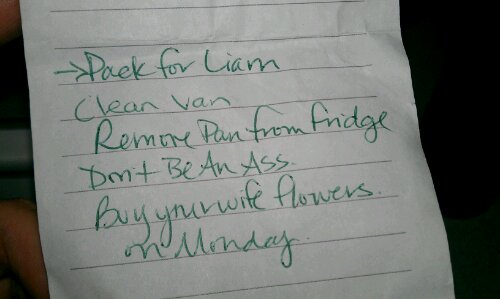 →Pack for Liam
Clean van
Remove Pan from fridge
Don't Be An Ass.
Buy your wife flowers.
on Monday.